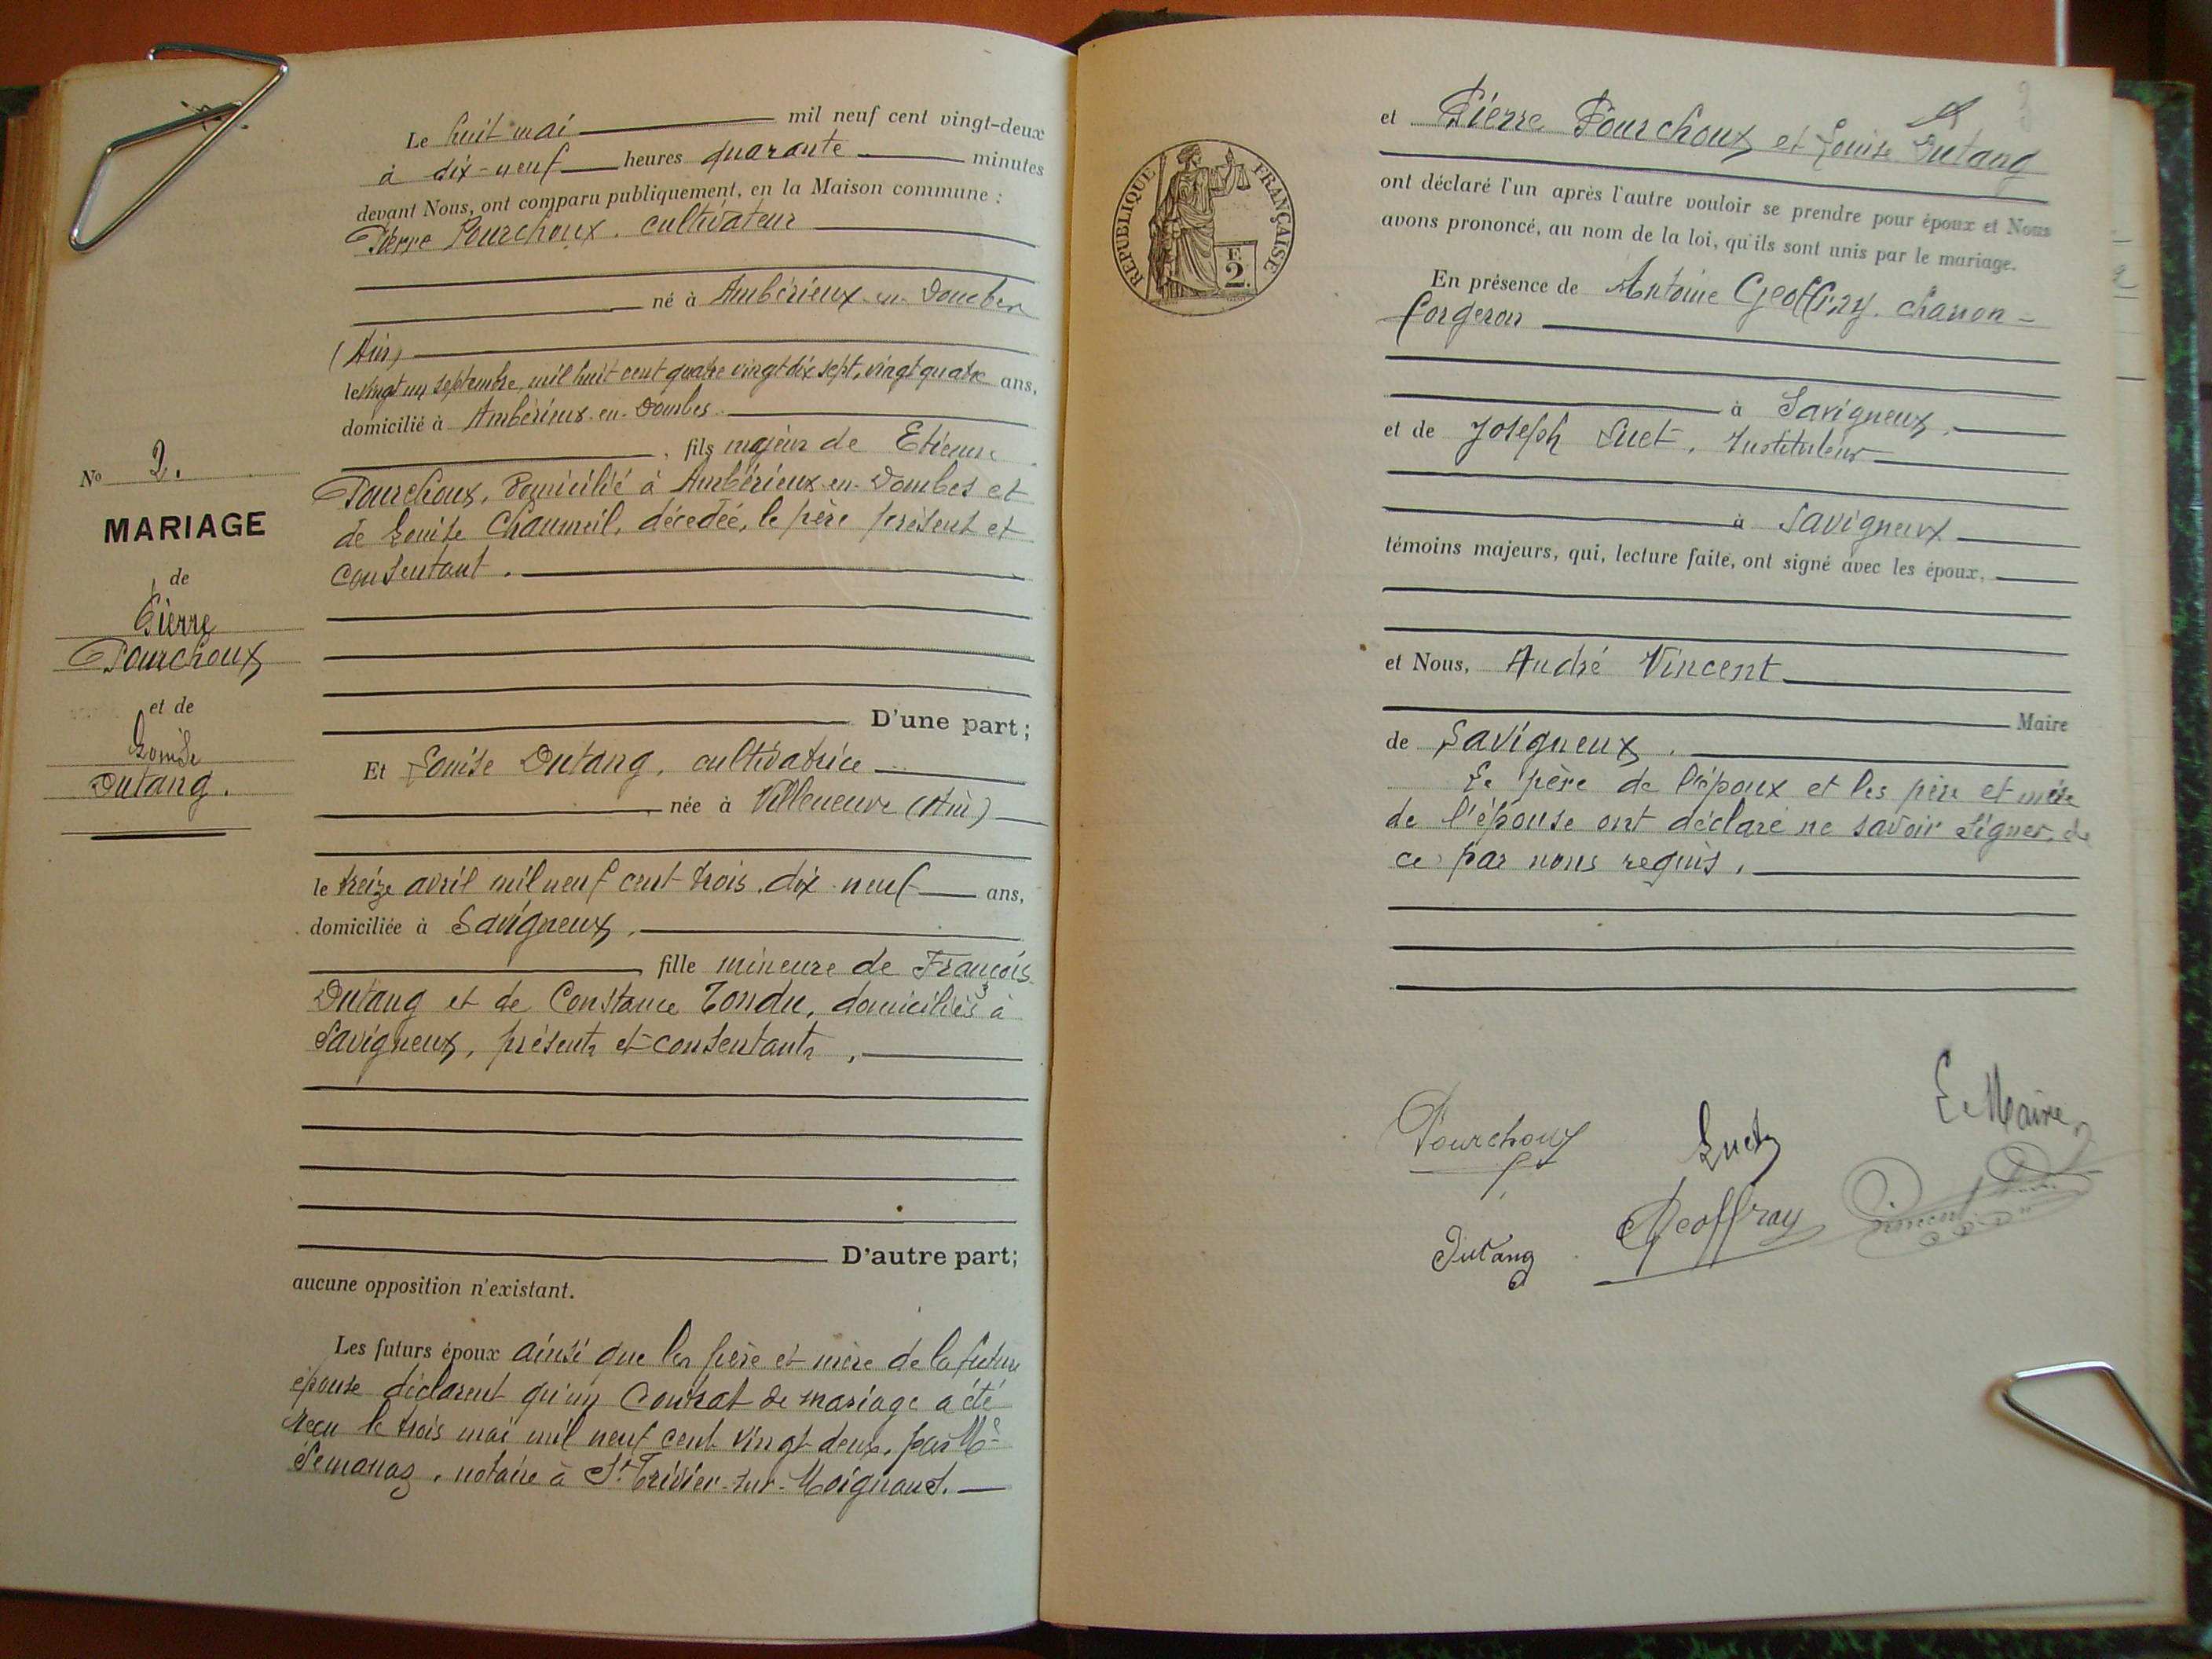 Le huit mai mil neuf cent vingt-deux
à dix-neuf heures quarante minutes
devant Nous, ont comparu publiquement, en la Maison commune :
Pierre Pourchoux. cultivateur
né à Ambérieux-en-Dombes
(Ain)
le vingt un septembre, mil huit cent quatre vingt dix sept, vingt quatre ans,
domicilié à Ambérieux-en-Dombes
, fils majeur de Etienne
Pourchoux, domicilié à Ambérieux-en-Dombes et
de Louise Chaumeil, décédée, le père présent et
consentant.
No 2.
MARIAGE
de
Pierre
Pourchoux
et de
Louise
Dutang.
D'une part;
Et Louise Dutang, cultivatrice
née à Villeneuve (Ain)
le treize avril mil neuf cent trois, dix-neuf ans,
domiciliée à Savigneux.
, fille mineure de François
Dutang et de Constance Tondu, domiciliés à
Savigneux, présents et consentants,
D'autre part;
aucune opposition n'existant.
Les futurs époux ainsi que les père et mère de la future
épouse déclarent qu'un contrat de mariage a été
reçu le trois mai mil neuf cent vingt deux, par Me
notaire à St Trivier-sur-Moignans.
et Pierre Pourchoux et Louise Dutang
ont déclaré l'un après l'autre vouloir se prendre pour époux et Nous
avons prononcé, au nom de la loi, qu'ils sont unis par le mariage.
RÉPUBLIQUE FRANÇAISE
F.
2.
En présence de Antoine Geoffray. charron-
forgeron
à Savigneux.
et de Joseph Suet, Instituteur
à Savigneux
témoins majeurs, qui, lecture faite, ont signé avec les époux,
et Nous, André Vincent
Maire
de Savigneux.
Le père de l'époux et les père et mère
de l'épouse ont déclaré ne savoir signer, de
ce par nous requis.
Le Maire,
Pourchoux
Suet
Geoffray
Vincent
Dutang